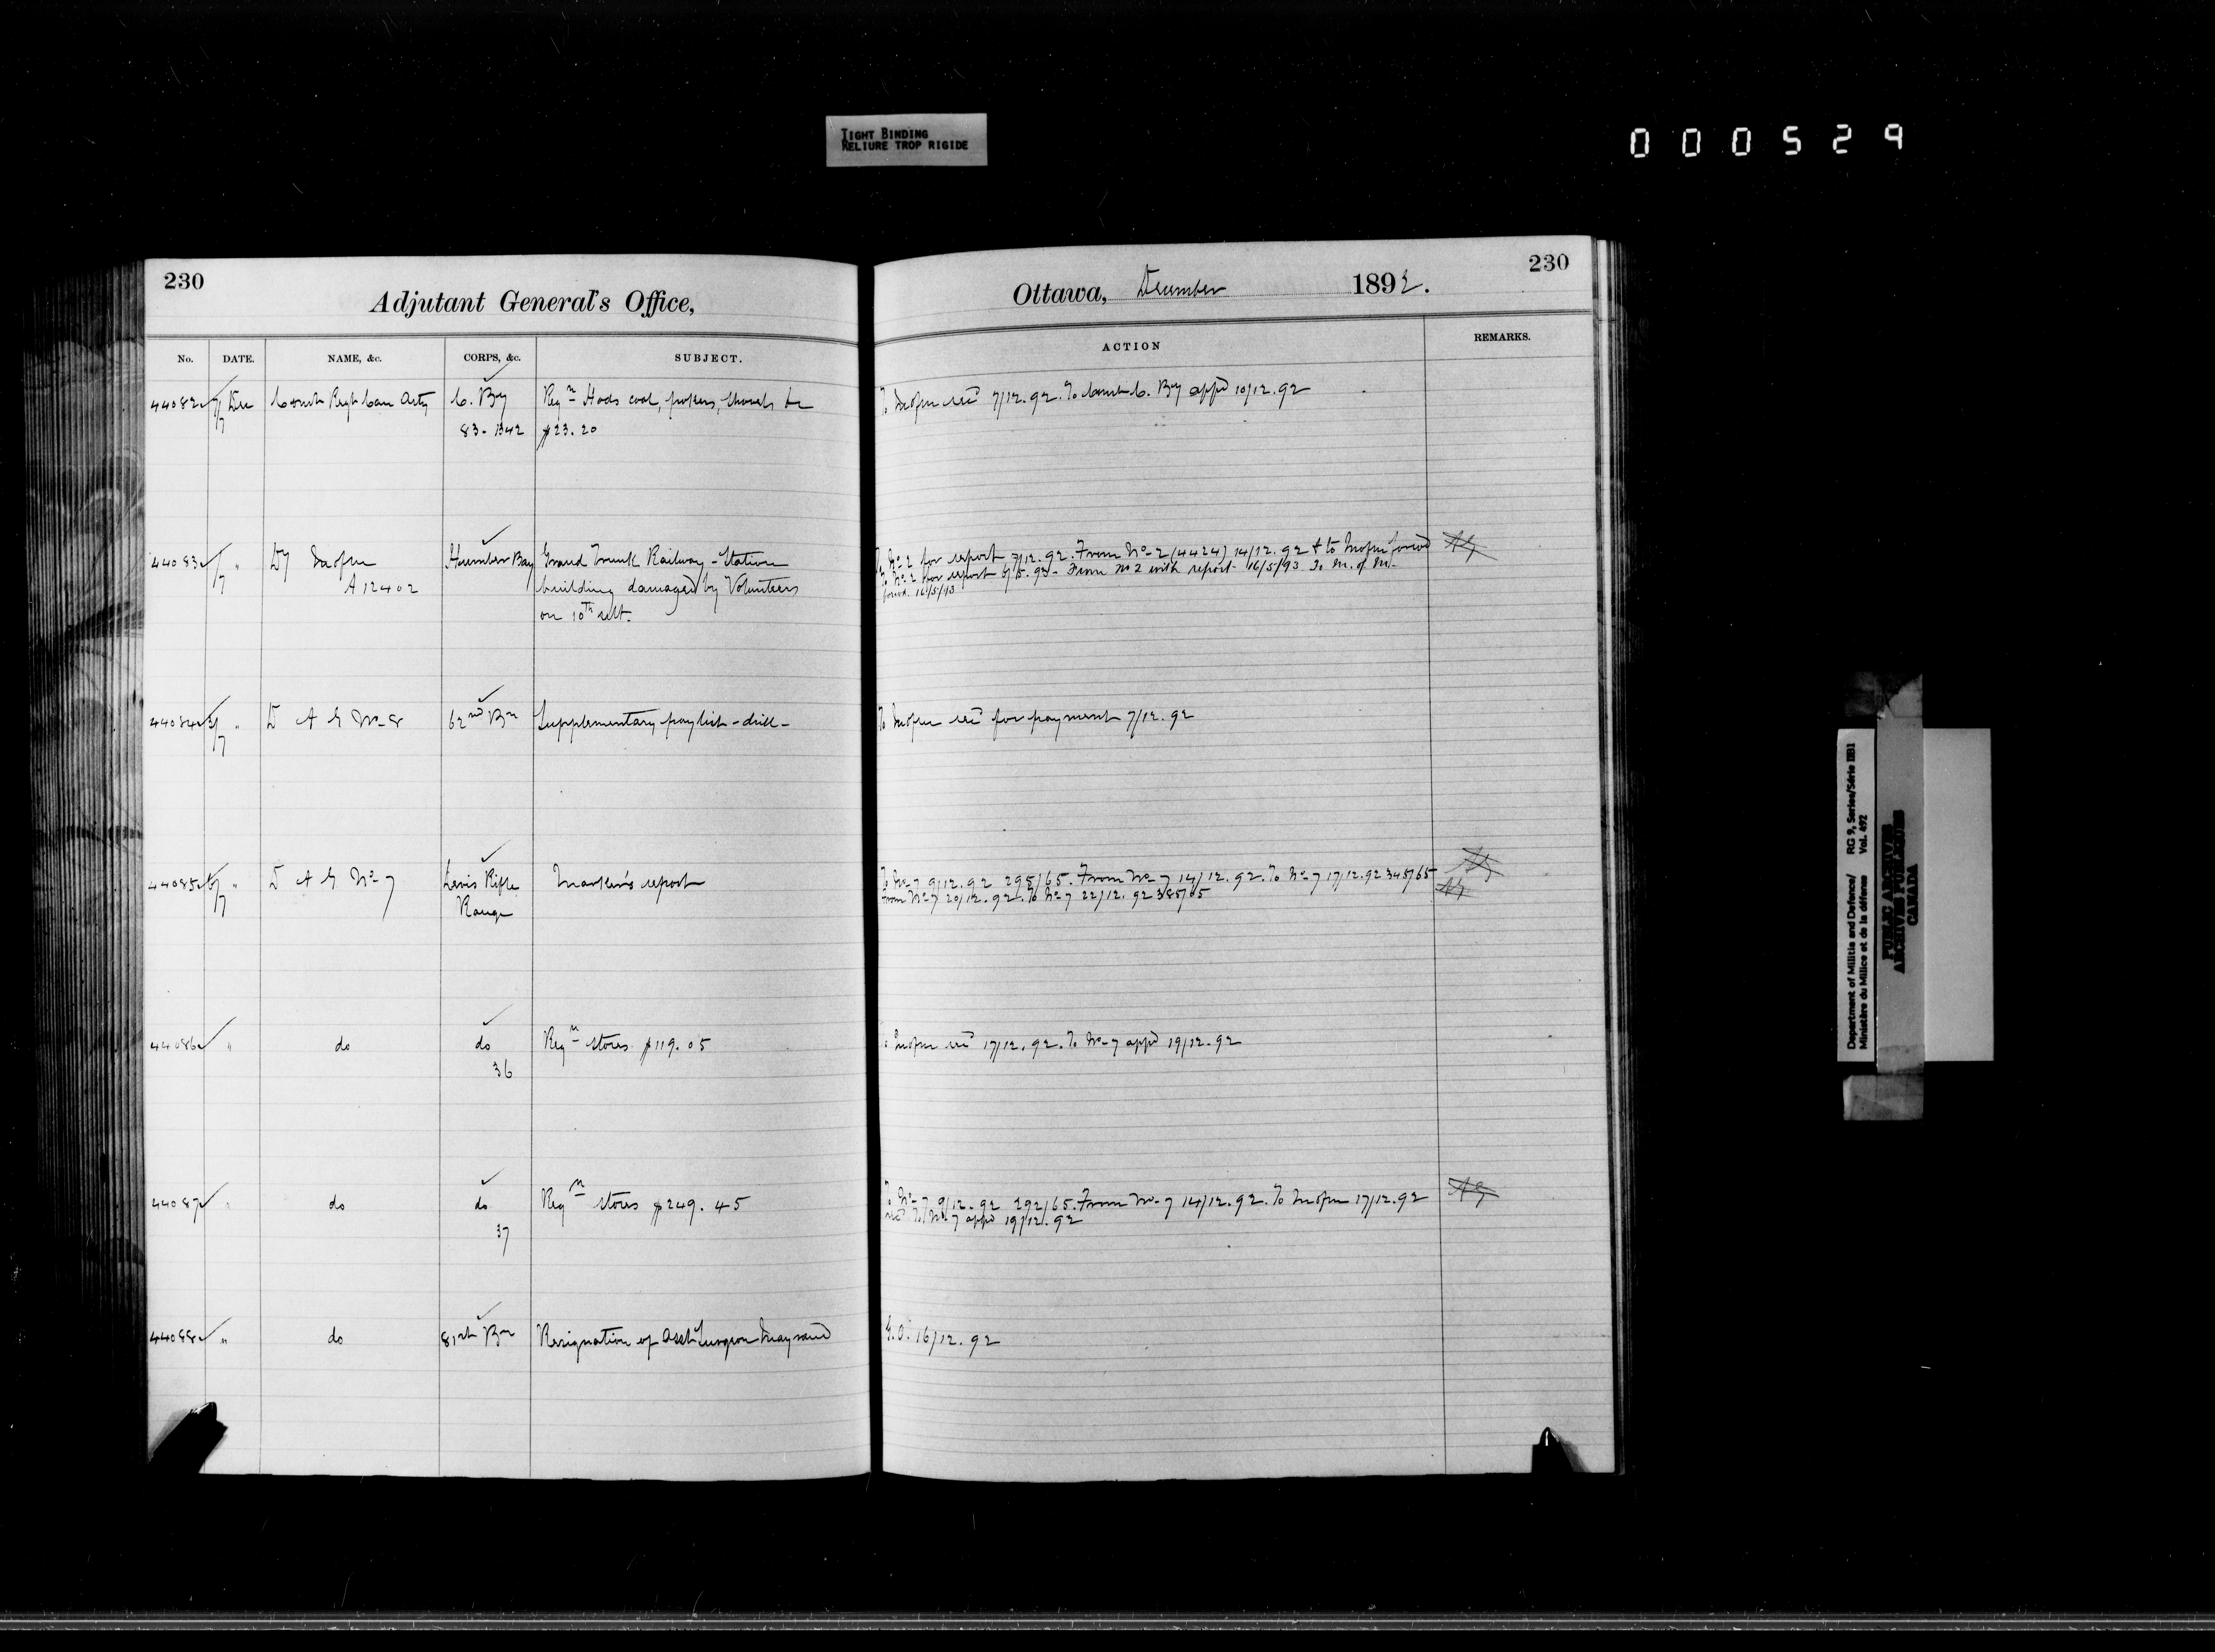 TIGHT BINDING
RELIURE TROP RIGIDE
000529
230
Adjutant General's Office,
Ottawa, December 1892.
230
No. DATE. NAME, &c. CORPS, &c. SUBJECT. ACTION REMARKS.
44082 7 Dec Comdt Regt Can Arty C. By Reqn Hods coal, pokers, shovels &c To 7/12.92. To Comdt C. By appd 10/12.92
83-1342 $23.20
44083 7 " Dy A12402 Humber Bay Grand Trunk Railway - Station building damaged by Volunteers on 10th ult. To No 2 for report 7/12.92. From No 2 (4424) 14/12.92 & to forwd AG
To No 2 for report From No 2 with report 16/5/93 To M. of M.
forwd. 16/5/93
44084 7 " D A G No 8 62nd Bn Supplementary paylist - drill - To for payment 7/12.92
44085 7 " D A G No 7 Levis Rifle Range Marker's report To No 7 9/12.92 295/65. From No 7 14/12.92. To No 7 17/12.92 345/65 AG
From No 7 20/12.92. To No 7 22/12.92 385/65 AG
44086 " do do Reqn stores $119.05 17/12.92. To No 7 appd 19/12.92
36
44087 " do do Reqn stores $249.45 To No 7 9/12.92 292/65. From No 7 14/12.92. To 17/12.92 AG
37 To No 7 appd 19/12.92
44088 " do 81st Bn Resignation of Asst Surgeon G.O. 16/12.92
Department of Militia and Defence/ RG 9, Series/Série IIB1
Ministère du Milice et de la défense Vol. 492
PUBLIC ARCHIVES
ARCHIVES PUBLIQUES
CANADA